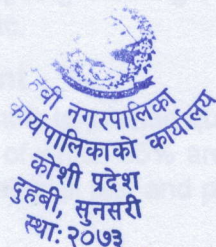 दुहवी नगरपालिका
कार्यपालिकाको कार्यालय
कोशी प्रदेश
दुहबी, सुनसरी
स्था: २०७३